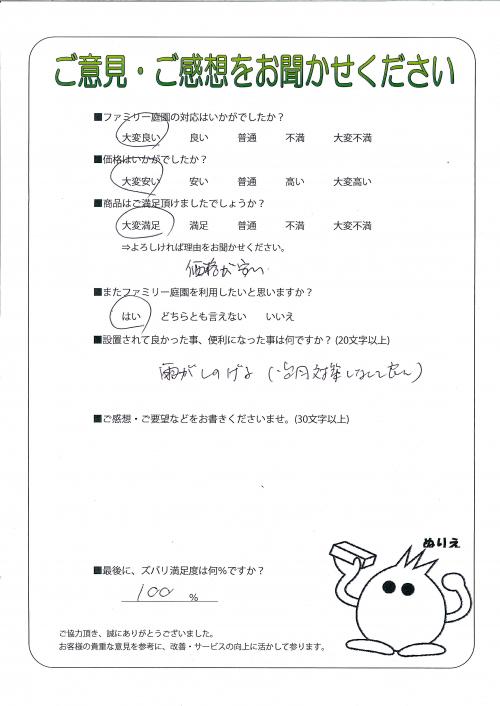 ご意見・ご感想をお聞かせください
■ファミリー庭園の対応はいかがでしたか？
大変良い 良い 普通 不満 大変不満
■価格はいかがでしたか？
大変安い 安い 普通 高い 大変高い
■商品はご満足頂けましたでしょうか？
大変満足 満足 普通 不満 大変不満
⇒よろしければ理由をお聞かせください。
価格が安い
■またファミリー庭園を利用したいと思いますか？
はい どちらとも言えない いいえ
■設置されて良かった事、便利になった事は何ですか？ (20文字以上)
雨がしのげる
■ご感想・ご要望などをお書きくださいませ。(30文字以上)
ぬりえ
■最後に、ズバリ満足度は何％ですか？
100 %
ご協力頂き、誠にありがとうございました。
お客様の貴重な意見を参考に、改善・サービスの向上に活かして参ります。